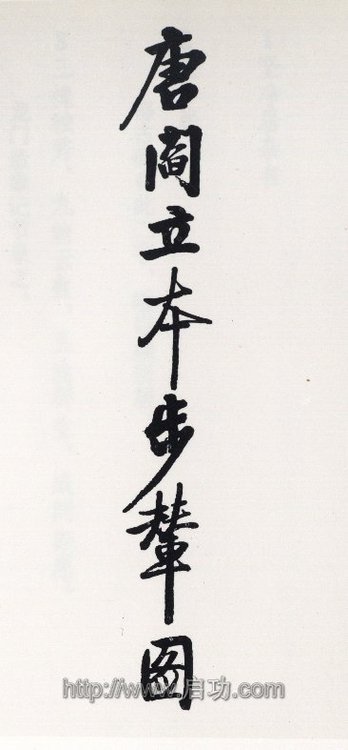 唐阎立本步辇图
http://www.启功.com